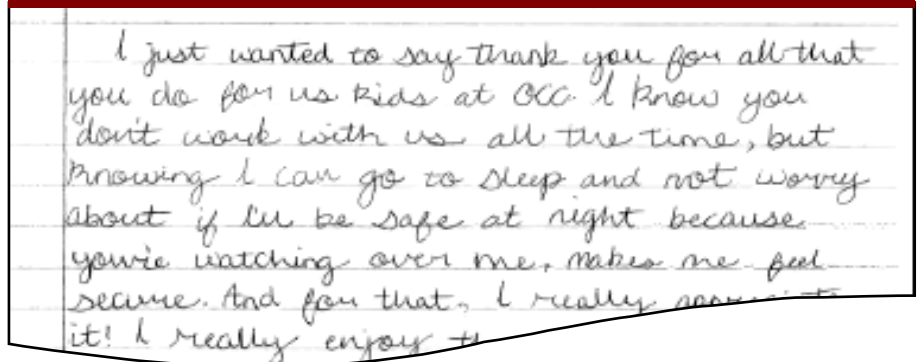 I just wanted to say thank you for all that
you do for us kids at OCC. I know you
don't work with us all the time, but
knowing I can go to sleep and not worry
about if I'll be safe at night because
you're watching over me, makes me feel
secure. And for that, I really
it! I really enjoy